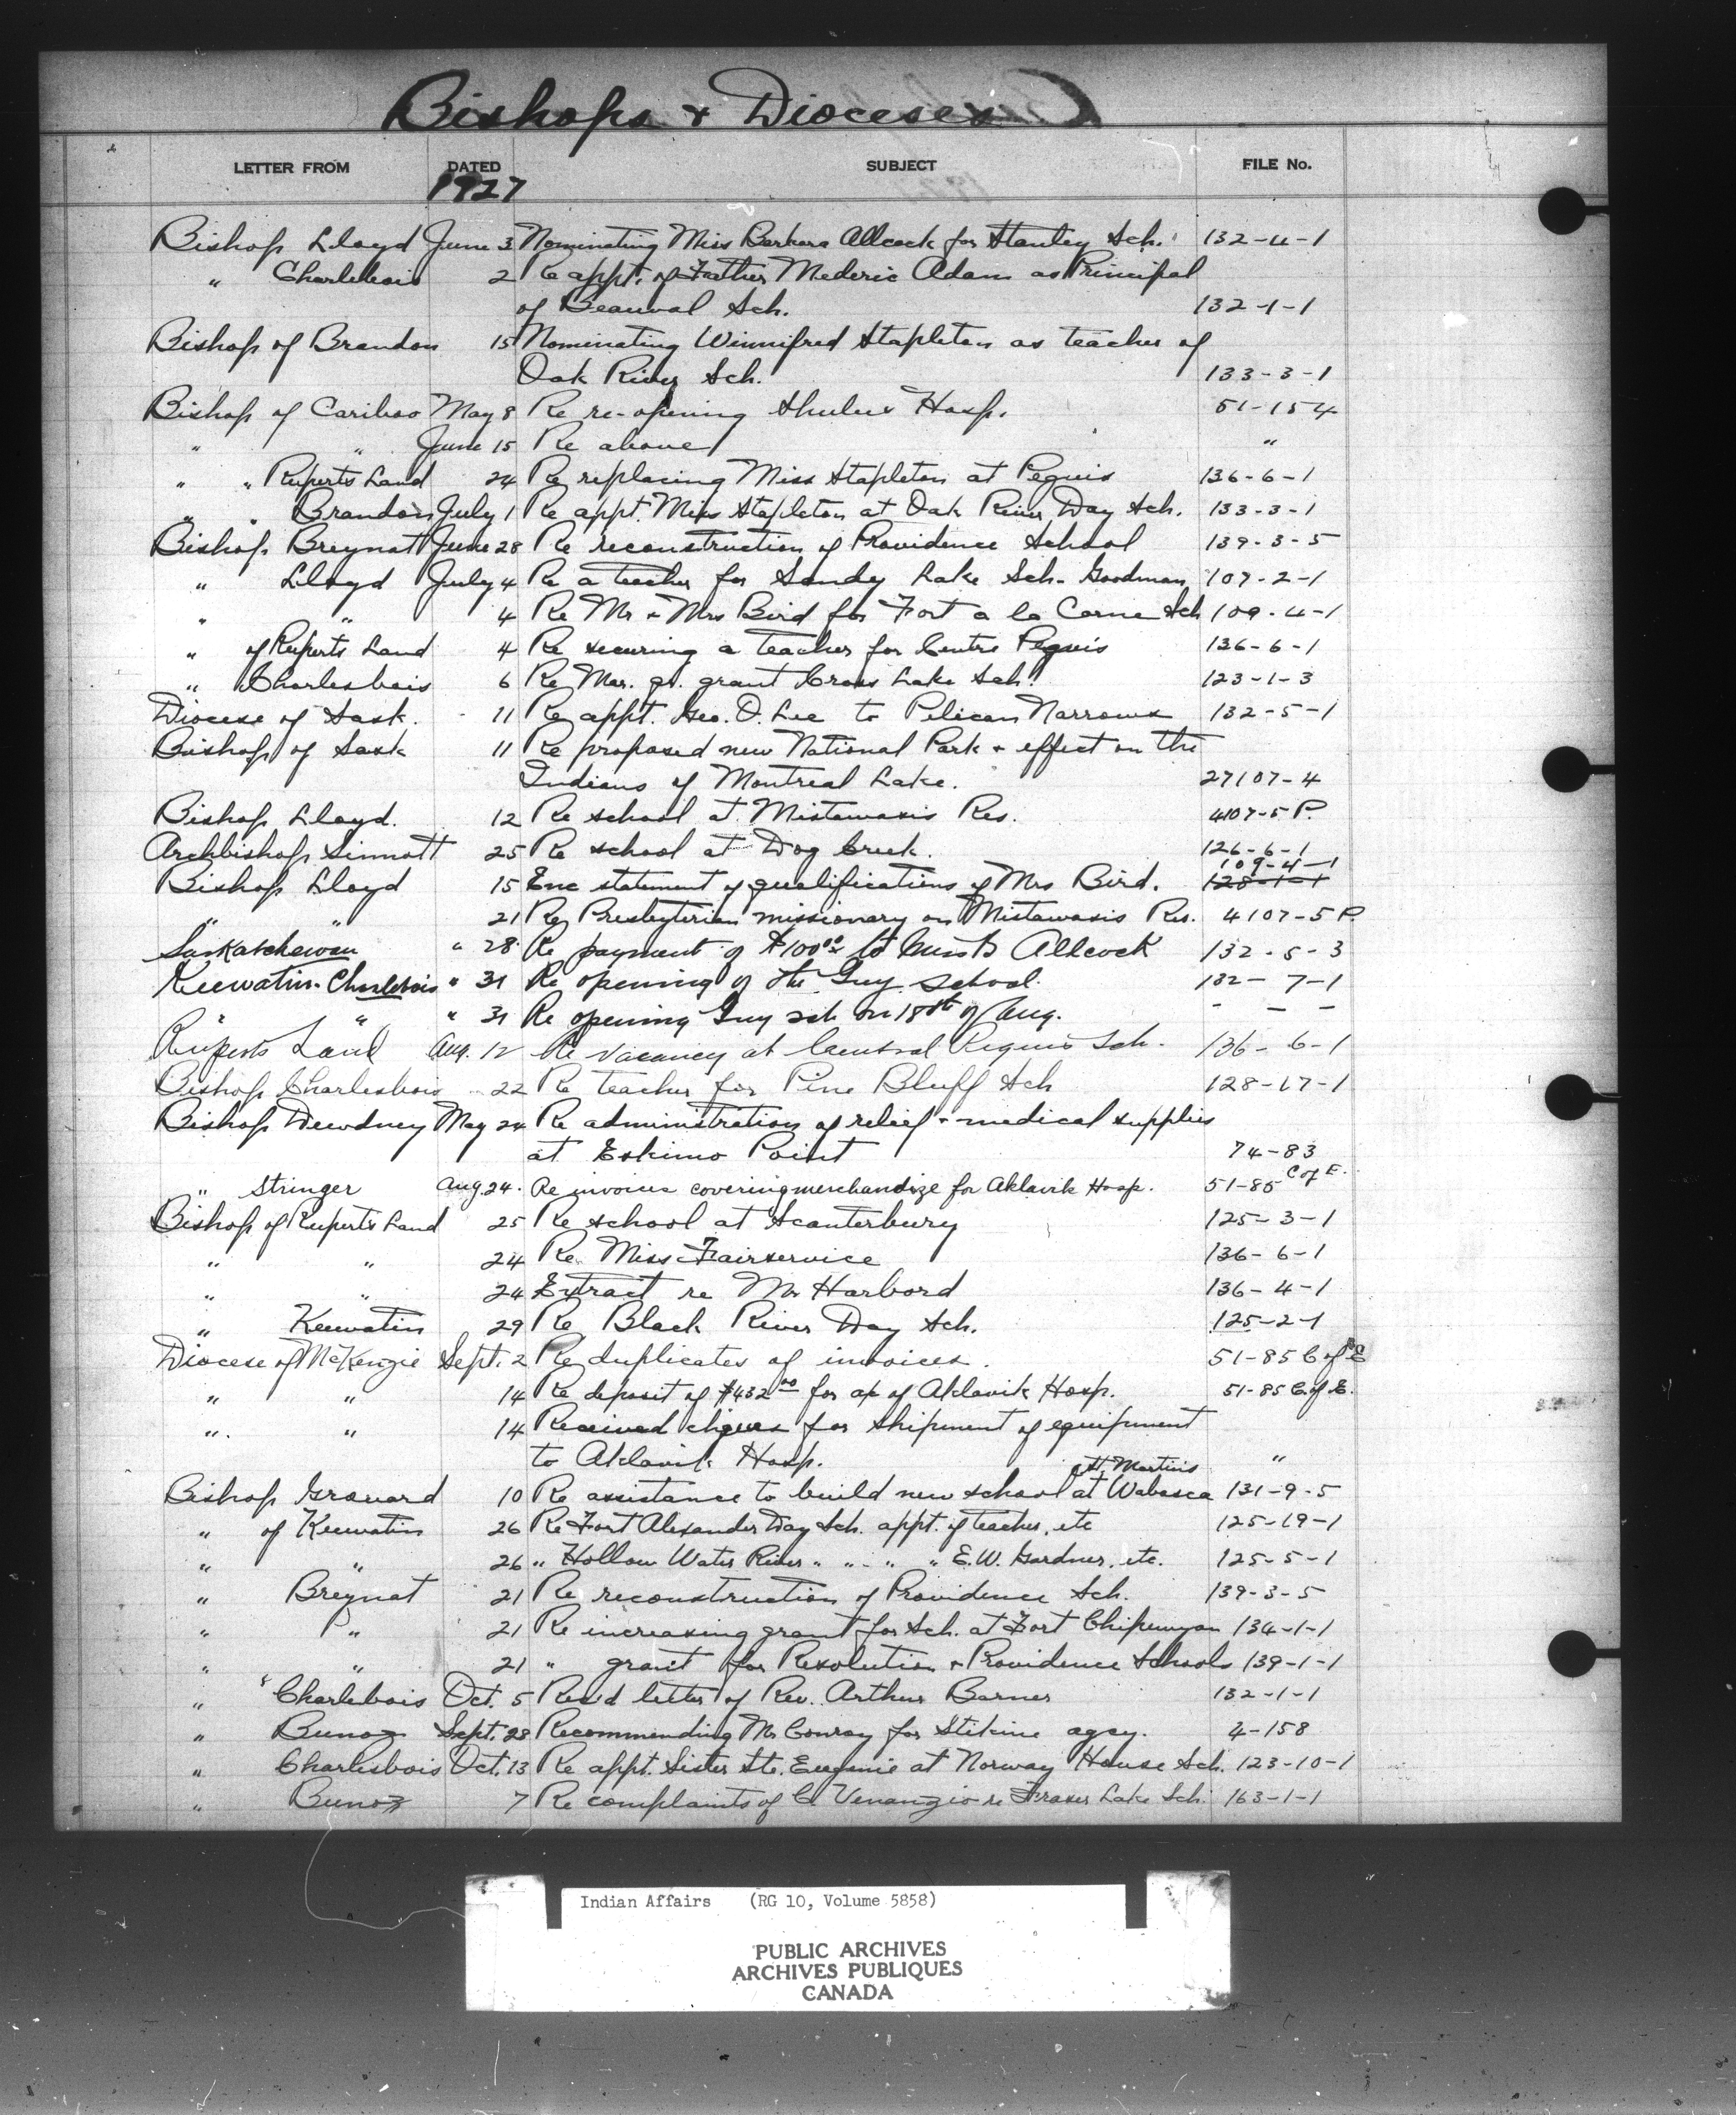 Bishops & Dioceses
LETTER FROM DATED SUBJECT FILE No.
1927
Bishop Lloyd June 3 Nominating Miss Barbara Allcock for Stanley Sch. 132-4-1
" Charlebois 2 Re appt. of Father Mederic Adam as Principal
of Beauval Sch. 132-1-1
Bishop of Brandon 15 Nominating Winnifred Stapleton as teacher of
Oak River Sch. 133-3-1
Bishop of Cariboo May 8 Re re-opening Shulus Hosp. 51-154
" " June 15 Re above "
" " Ruperts Land 24 Re replacing Miss Stapleton at Peguis 136-6-1
" " Brandon July 1 Re appt. Miss Stapleton at Oak River Day Sch. 133-3-1
Bishop Breynat June 28 Re reconstruction of Providence School 139-3-5
" Lloyd July 4 Re a teacher for Sandy Lake Sch- Goodman 107-2-1
" " 4 Re Mr & Mrs Bird for Fort a la Corne Sch 109-4-1
" of Ruperts Land 4 Re securing a teacher for Centre Peguis 136-6-1
" Charlesbois 6 Re Mar. qr. grant Cross Lake Sch. 123-1-3
Diocese of Sask. 11 Re appt. Geo. O. Lee to Pelican Narrows 132-5-1
Bishop of Sask 11 Re proposed new National Park & effect on the
Indians of Montreal Lake. 27107-4
Bishop Lloyd. 12 Re school at Mistawasis Res. 4107-5 P.
Archbishop Sinnott 25 Re school at Dog Creek. 126-6-1
109-4-1
Bishop Lloyd 15 Enc statement of qualifications of Mrs Bird. 128-1-1
" " 21 Re Presbyterian missionary on Mistawasis Res. 4107-5 P.
Saskatchewan " 28 Re payment of $100.00 to Miss B Allcock 132-5-3
Keewatin-Charlebois " 31 Re opening of the Guy school. 132-7-1
" " " 31 Re opening Guy sch on 18th of Aug. - - -
Ruperts Land Aug. 12 Re vacancy at Central Peguis Sch. 136-6-1
Bishop Charlesbois 22 Re teacher for Pine Bluff Sch 128-17-1
Bishop Dewdney May 24 Re administration of relief & medical supplies
at Eskimo Point 74-83
" Stringer Aug. 24. Re invoices covering merchandize for Aklavik Hosp. 51-85 C of E.
Bishop of Ruperts Land 25 Re school at Scanterbury 125-3-1
" " 24 Re Miss Fairservice 136-6-1
" " 24 Extract re Mr Harbord 136-4-1
" Keewatin 29 Re Black River Day Sch. 125-2-1
Diocese of McKenzie Sept. 2 Re duplicates of invoices. 51-85 C of E
" " 14 Re deposit of $432.00 for a/c of Aklavik Hosp. 51-85 C. of E.
" " 14 Received cheques for shipment of equipment
to Aklavik Hosp. "
St. Martins
Bishop Grouard 10 Re assistance to build new school at Wabasca 131-9-5
" of Keewatin 26 Re Fort Alexander Day Sch. appt. of teacher, etc 125-19-1
" " 26 " Hollow Water River " " " " E.W. Gardner, etc. 125-5-1
" Breynat 21 Re reconstruction of Providence Sch. 139-3-5
" " 21 Re increasing grant for Sch. at Fort Chipewyan 134-1-1
" " 21 " grant for Resolution & Providence Schools 139-1-1
" Charlebois Oct. 5 Rec'd letter of Rev. Arthur Barner 132-1-1
" Bunoz Sept. 28 Recommending Mr Conroy for Stikine agcy. 4-158
" Charlesbois Oct. 13 Re appt. Sister Ste. Eugenie at Norway House Sch. 123-10-1
" Bunoz 7 Re complaints of C Venanzio re Fraser Lake Sch. 163-1-1
Indian Affairs (RG 10, Volume 5858)
PUBLIC ARCHIVES
ARCHIVES PUBLIQUES
CANADA